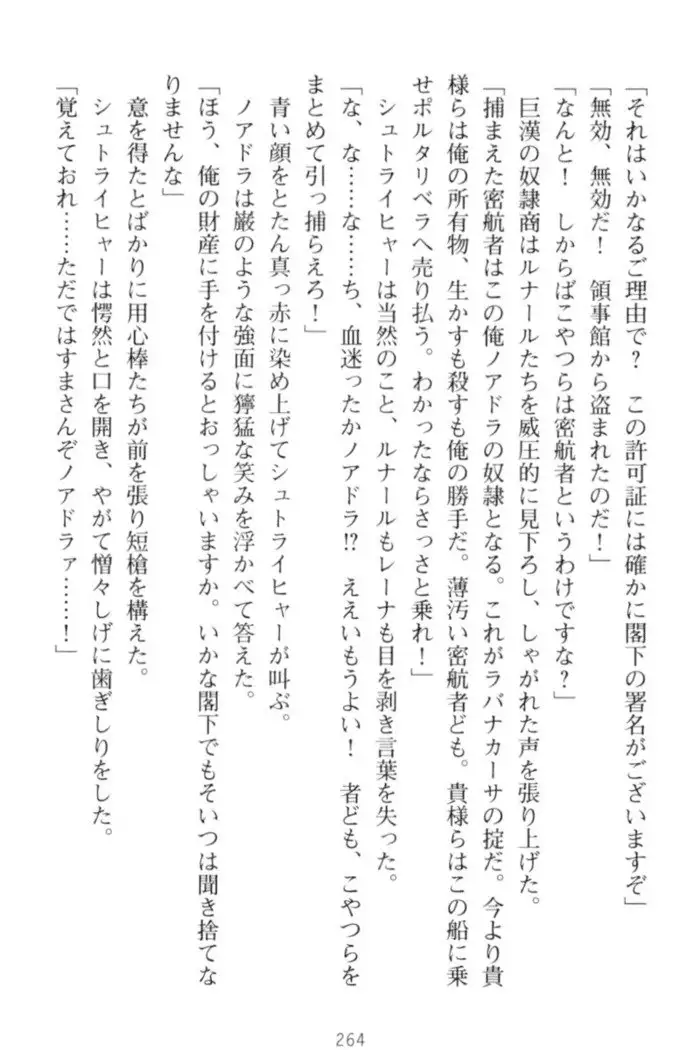 「それはいかなるご理由で？　この許可証には確かに閣下の署名がございますぞ」
「無効、無効だ！　領事館から盗まれたのだ！」
「なんと！　しからばこやつらは密航者というわけですな？」
　巨漢の奴隷商はルナールたちを威圧的に見下ろし、しゃがれた声を張り上げた。
「捕まえた密航者はこの俺ノアドラの奴隷となる。これがラバナカーサの掟だ。今より貴
様らは俺の所有物、生かすも殺すも俺の勝手だ。薄汚い密航者ども。貴様らはこの船に乗
せポルタリベラへ売り払う。わかったならさっさと乗れ！」
　シュトライヒャーは当然のこと、ルナールもレーナも目を剥き言葉を失った。
「な、な……な……ち、血迷ったかノアドラ!?　ええいもうよい！　者ども、こやつらを
まとめて引っ捕らえろ！」
　青い顔をとたん真っ赤に染め上げてシュトライヒャーが叫ぶ。
　ノアドラは巌のような強面に獰猛な笑みを浮かべて答えた。
「ほう、俺の財産に手を付けるとおっしゃいますか。いかな閣下でもそいつは聞き捨てな
りませんな」
　意を得たとばかりに用心棒たちが前を張り短槍を構えた。
　シュトライヒャーは愕然と口を開き、やがて憎々しげに歯ぎしりをした。
「覚えておれ……ただではすまさんぞノアドラァ……！」
264